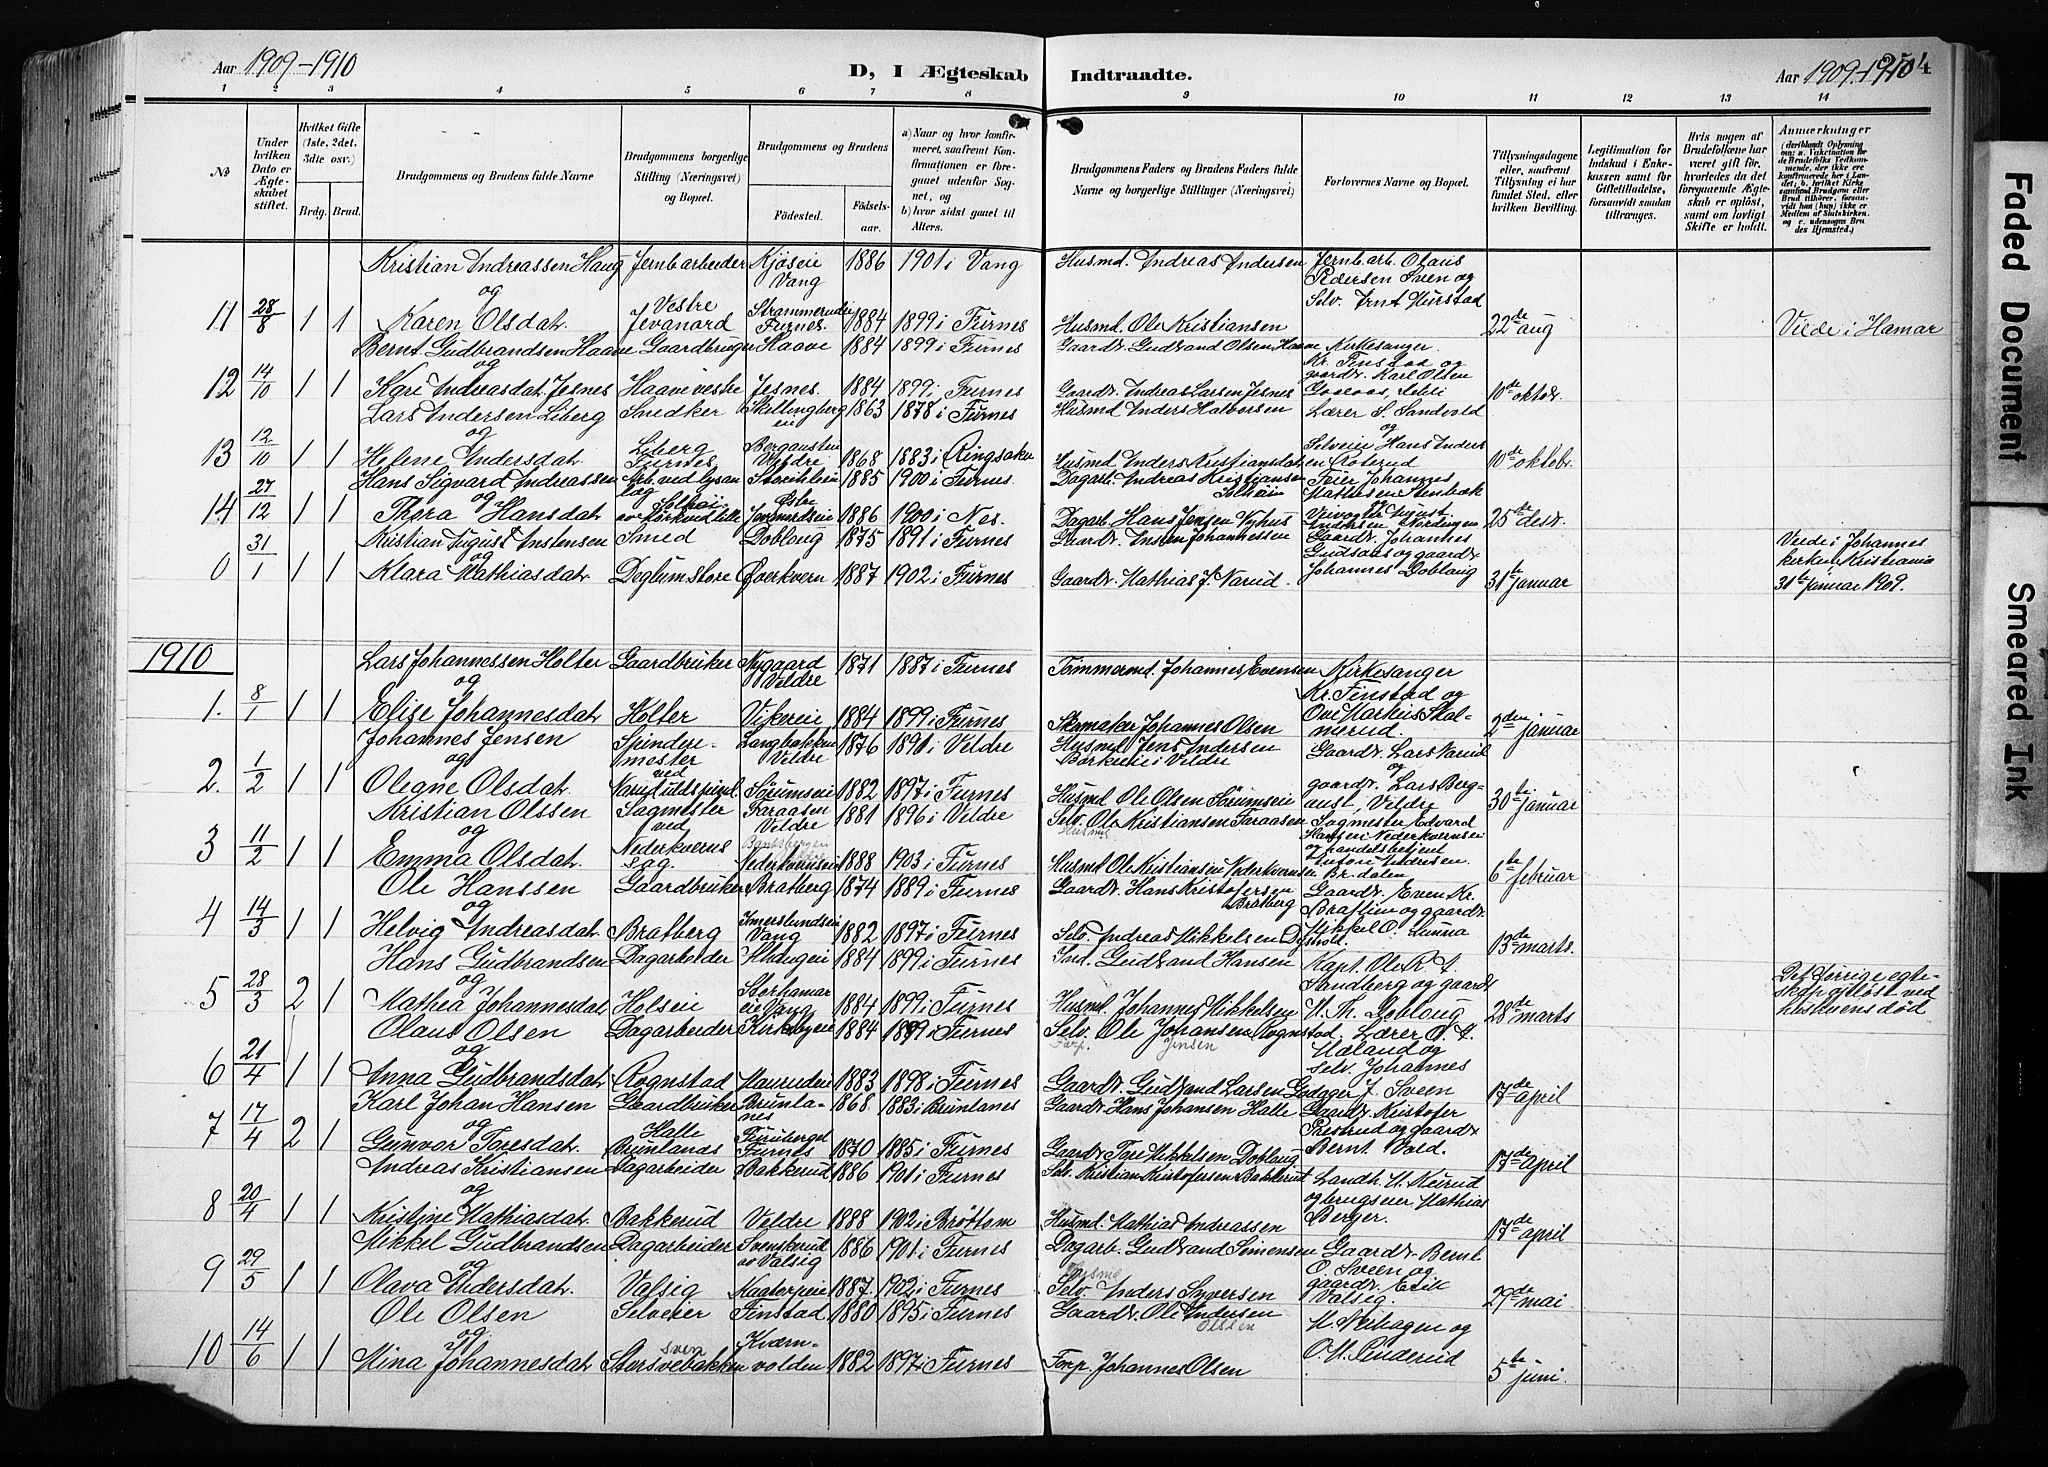 Aar 1909-1910
D, I Ægteskab Indtraadte.
Aar 1909-1910 254
1 2 3 4 5 6 7 8 9 10 11 12 13 14
No
Under hvilken Dato er Ægteskabet stiftet.
Hvilket Gifte (1ste, 2det, 3die osv.)
Brdg. Brud.
Brudgommens og Brudens fulde Navne
Brudgommens borgerlige Stilling (Næringsvei) og Bopæl.
Brudgommens og Brudens
Fødested. Fødselsaar.
a) Naar og hvor konfirmeret, saafremt Konfirmationen er foregaaet udenfor Sognet, og
b) hvor sidst gaaet til Alters.
Brudgommens Faders og Brudens Faders fulde Navne og borgerlige Stillinger (Næringsvei)
Forlovernes Navne og Bopæl.
Tillysningsdagene eller, saafremt Tillysning ei har fundet Sted, efter hvilken Bevilling.
Legitimation for Indskud i Enkekassen samt for Giftetilladelse, forsaavidt saadan tiltrænges.
Hvis nogen af Brudefolkene har været gift før, hvorledes da det foregaaende Ægteskab er opløst, samt om lovligt Skifte er holdt.
Anmærkninger
Kristian Andreassen Haug Jernbarbeider Kjøseie Vang 1886 1901 i Vang Husmd. Andreas Andersen Jernbarb. Olaus Pedersen Sveen og
og
11 28/8 1 1 Karen Olsdat. Vestre Jevanord Strammerudei Furnes. 1884 1899 i Furnes Husmd. Ole Kristiansen Selv. Arnt 22de aug Viede i Hamar
Bernt Gudbrandsen Haave Gaardbruger Haave 1884 1899 i Furnes Gaardr. Gudbrand Olsen Haave Kirkesanger
og Kr. Finstad og
12 14/10 1 1 Kari Andreasdat. Jesnes Haave vestre Jesnes. 1884 1899 i Furnes Gaardr. Andreas Larsen Jesnes gaardr. Karl Olsen 10de oktbr.
Lars Andersen Liberg Snedker Skellingberg 1863 1878 i Furnes Husmd Anders Halvorsen Lærer S. Sandvold
og og
13 12/10 1 1 Helene Andersdat. Liberg Furnes Bergausteie Veldre 1868 1883 i Ringsaker Husmd Anders Kristiansen Selveier Hans Anders 10de oktobr.
Hans Sigvard Andreassen Arb. ved lysanlæg 1885 1900 i Furnes. Dagarb. Andreas Kristiansen Solheim Feier Johannes Mathisen Stenbæk
og
14 27/12 1 1 Thora Hansdat. Østre 1886 1900 i Nes. Dagarb. Hans Jensen Nyhus 25de desr.
Kristian August Anstensen Smed Dobloug 1875 1891 i Furnes Gaardr. Ansten Johannessen Gaardr. Johannes
og Gudsaas og gaardr.
0 31/1 1 1 Klara Mathiasdat. Deglum store Øverkvern 1887 1902 i Furnes Gaardr. Mathias J. Narud Johannes Doblaug 31te januar Viede i Johannes kirken Kristiania 31te januar 1909.
1910
Lars Johannessen Holter Gaardbruker Nygaard Veldre 1871 1887 i Furnes Tømmermd. Johannes Evensen Kirkesanger
og Kr. Finstad og
1. 8/1 1 1 Elise Johannesdat. Holter Vikseie 1884 1899 i Furnes Skomaker Johannes Olsen Ove Markus Skalmerud. 2den januar
Johannes Jensen Spinderemester Langbakken Veldre 1876 1891 i Veldre Husmd. Jens Andersen Gaardr. Lars Narud
og ved og
2. 1/2 1 1 Olegne Olsdat. Narud uldspind. Sørumseie 1882 1897 i Furnes Husmd Ole Olsen Sørumseie gaardr. Lars Bergaust, Veldre 30te januar
Kristian Olssen Sagmester Faraasen Veldre 1881 1896 i Veldre Selv. Ole Kristiansen Faraasen Sagmester Edvard
og ved Husmd Hansen Nederkvernseie
3 11/2 1 1 Emma Olsdat. Nederkverns sag. Nederkvernseie 1888 1903 i Furnes Husmd Ole Kristiansen Nederkvernseie og handelsbetjent Anton Andersen Brdalen 6te februar
Ole Hanssen Gaardbruker Bratberg 1874 1889 i Furnes Gaardr. Hans Kristofersen Bratberg Gaardr. Even Kr.
og
4 14/3 1 1 Helvig Andreasdat. Bratberg Imerslundseie Vang 1882 1897 i Furnes Selv. Andreas Mikkelsen Mikkel O. Lunna 13de marts.
Hans Gudbrandsen Dagarbeider Alhaugeie 1884 1899 i Furnes Ind. Gudbrand Hansen Kapt. Ole R. A.
og Sandberg og gaardr.
5 28/3 2 1 Mathea Johannesdat. Holseie Storhamar eie Vang 1884 1899 i Furnes Husmd. Johannes Mikkelsen M. Th. Doblaug 28de marts Det forrige egteskap opløst ved hustruens død
Olaus Olsen Dagarbeider Kirkebyeie 1884 1899 i Furnes Selv. Ole Johansen Rognstad. Lærer O. A.
og Forp. Jensen Mæland og
6 21/4 1 1 Anna Gudbrandsdat. Rognstad Maurudeie 1883 1898 i Furnes Gaardr. Gudbrand Larsen Godager selv. Johannes J. Sveen 17de april
Karl Johan Hansen Gaardbruker Brunlanes 1868 1883 i Brunlanes Gaardr. Hans Johansen Halle Gaardr. Kristofer
og Prestrud og gaardr.
7 17/4 2 1 Gunvor Toresdat. Halle Brunlanes Furuberget Furnes 1870 1885 i Furnes Gaardr. Tore Mikkelsen Doblaug Bernt Vold. 17de april
Andreas Kristiansen Dagarbeider Bakkerud 1886 1901 i Furnes Selv. Kristian Kristofersen Bakkerud Landh. M. Keirud
og og brugseier Mathias
8 20/4 1 1 Kristine Mathiasdat. Bakkerud Veldre 1888 1902 i Brøttom Husmd. Mathias Andreassen Berger. 17de april
Mikkel Gudbrandsen Dagarbeider Svenskerud av Valsig 1886 1901 i Furnes Dagarb. Gudbrand Simensen Gaardr. Bernt
og Husmd O. Sveen og
9 29/5 1 1 Olava Andersdat. Valsig Kaaterpeie 1887. 1902 i Furnes Selv. Anders Syversen gaardr. Erik Valsig. 29de mai
Ole Olsen Selveier Finstad 1880 1895 i Furnes Gaardr. Ole Andersen M. Neihagen og
og Olsen
10 14/6 1 1 Mina Johannesdat. Storsvebakken sven Kværnvolden 1882 1897 i Furnes Forp. Johannes Olsen O. M. Sinderud 5te juni.
Faded Document
Smeared Ink